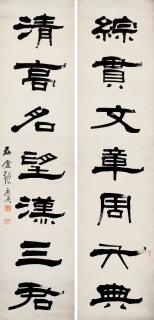 綜貫文章周六典
清高名望漢三君